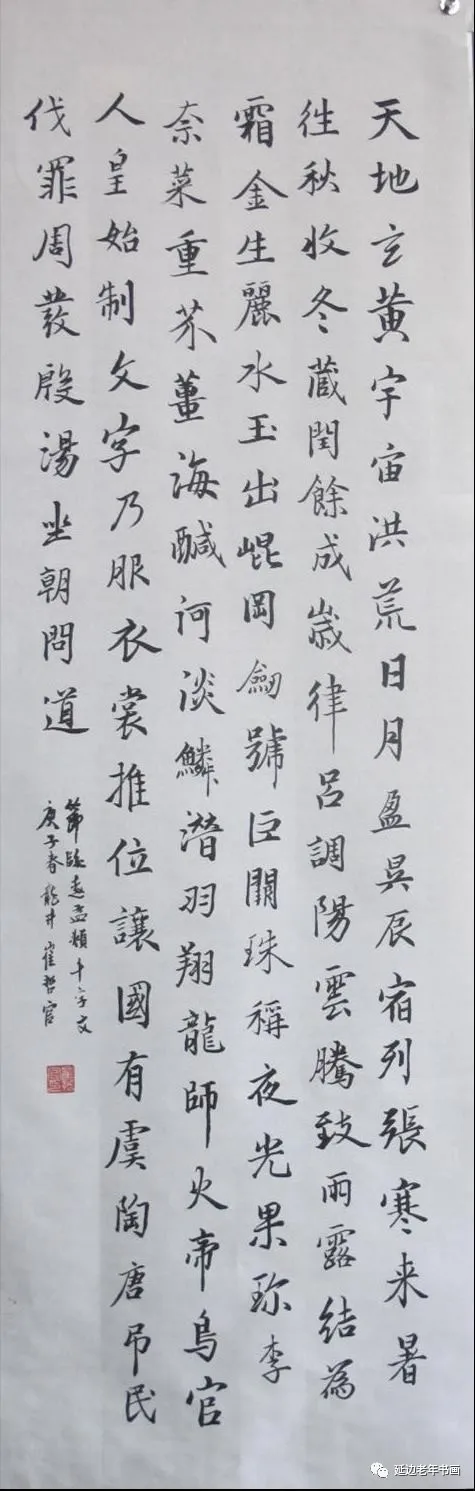 天地玄黄宇宙洪荒日月盈昃辰宿列張寒来暑
往秋收冬藏閏餘成歲律呂調陽雲騰致雨露結為
霜金生麗水玉出崐岡劔號巨闕珠稱夜光果珎李
奈菜重芥薑海鹹河淡鱗潛羽翔龍師火帝鳥官
人皇始制文字乃服衣裳推位讓國有虞陶唐吊民
伐罪周發殷湯坐朝問道
節臨趙孟頫千字文
庚子春龍井崔哲官
延边老年书画